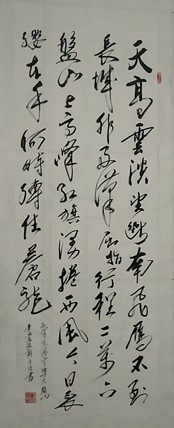 天高雲淡望斷南飛鴈不到
長城非好漢屈指行程二萬六
盤山上高峰紅旗漫捲西風今日長
纓在手何時縛住蒼龍